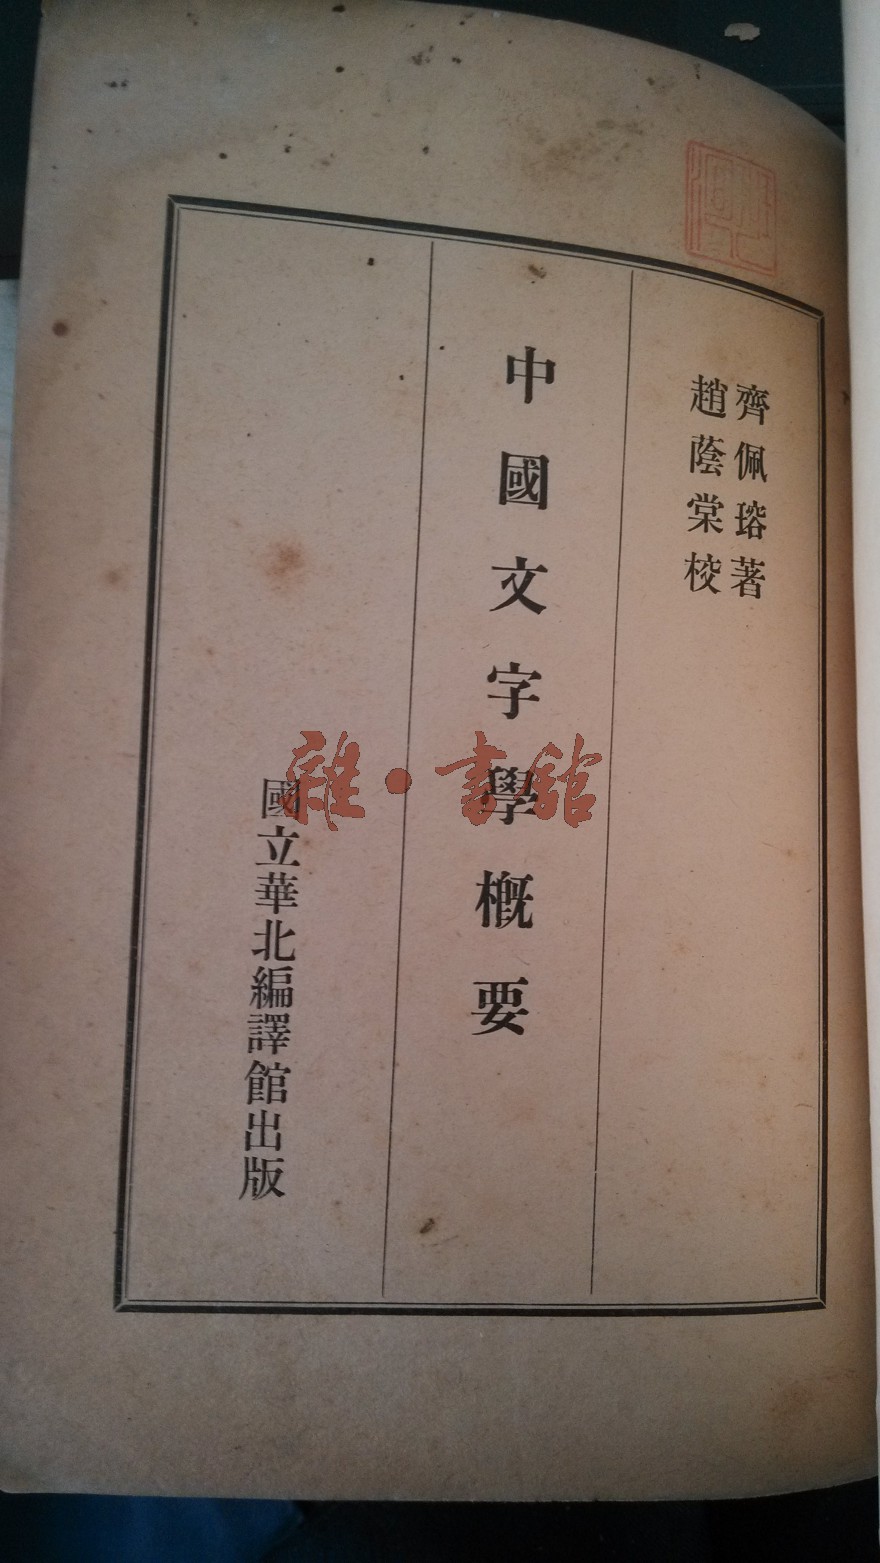 齊佩瑢著
趙蔭棠校
中國文字學概要
國立華北編譯館出版
雜·書館